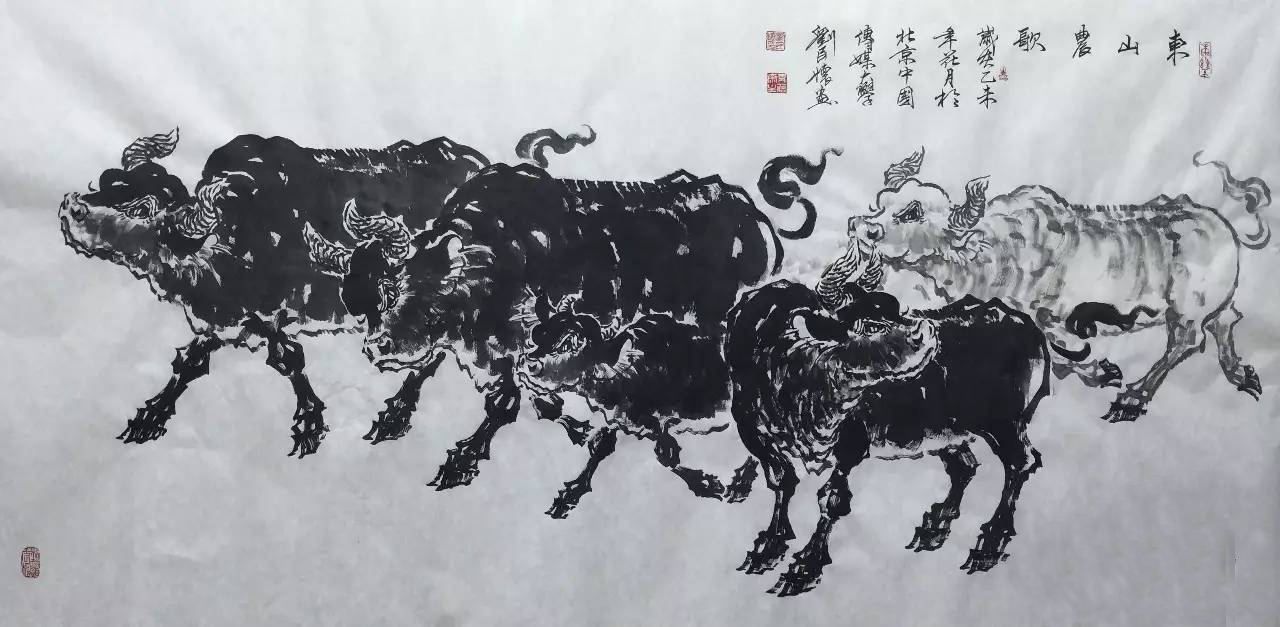 東山農歌
歲乙未
年花月於
北京中國
傳媒大學
劉畫